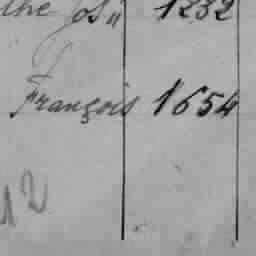 the Jos" 1232
François 1654
12